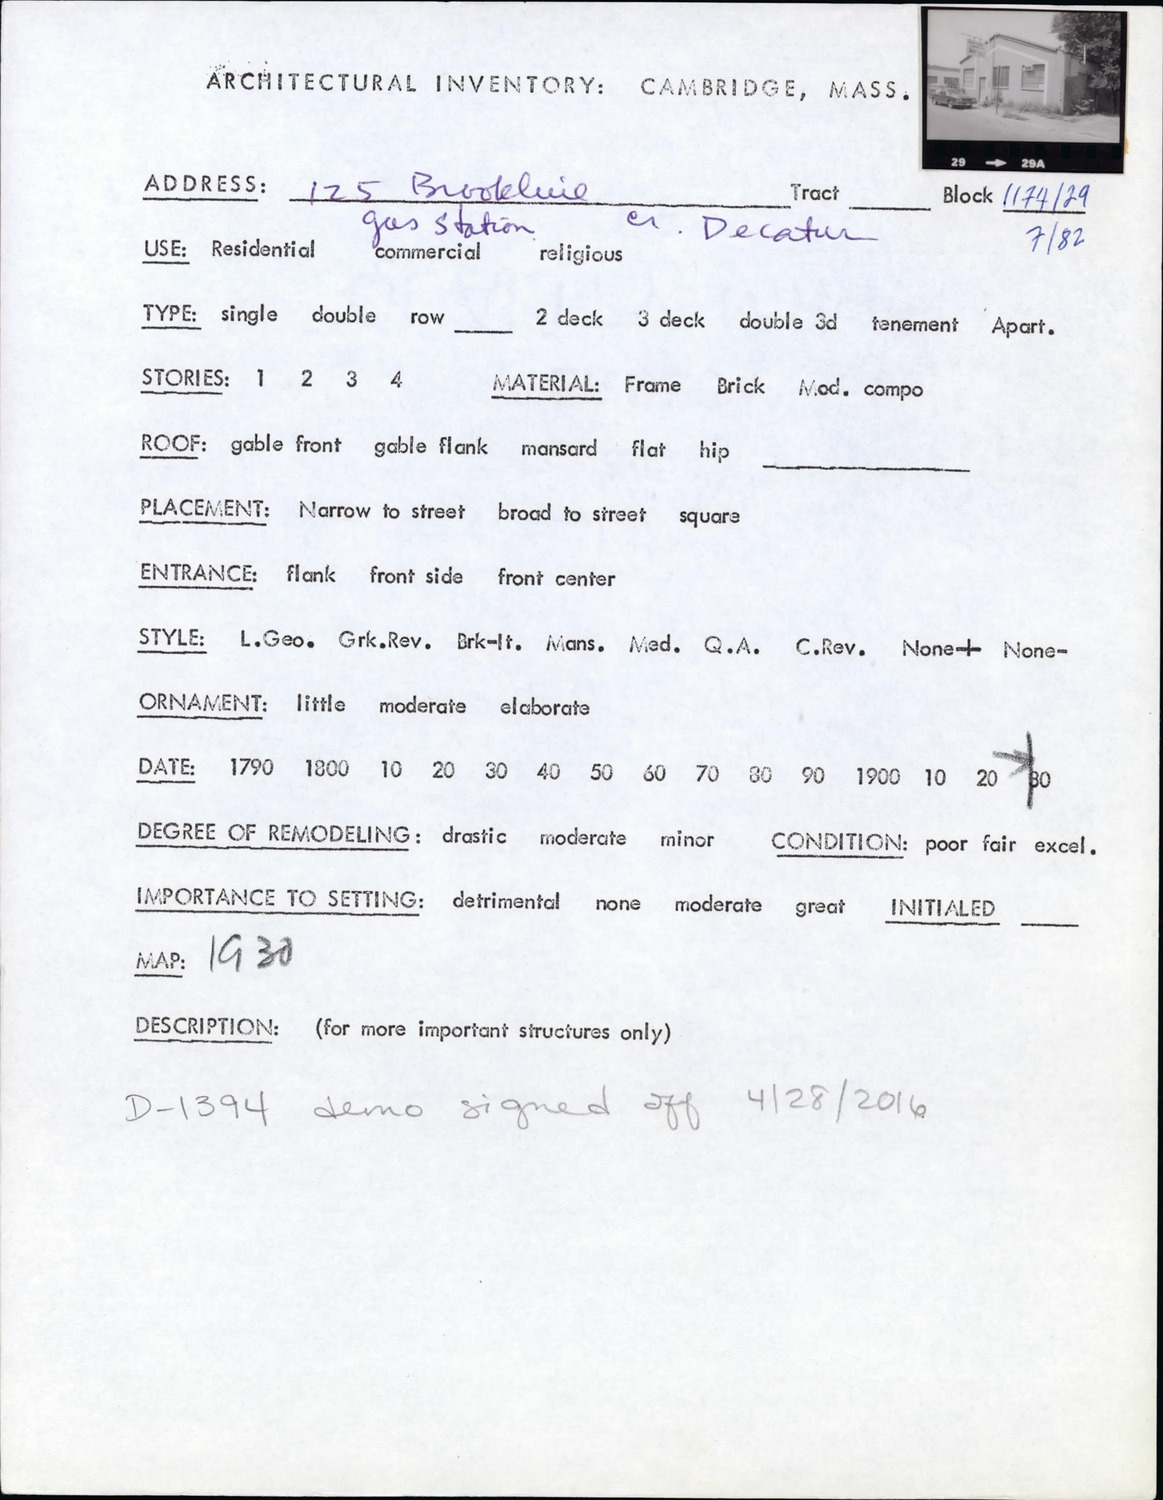 ARCHITECTURAL INVENTORY: CAMBRIDGE, MASS.
29 → 29A
ADDRESS: 125 Brookline Tract ____ Block 1174/29
gas station cr. Decatur 7/82
USE: Residential commercial religious
TYPE: single double row ____ 2 deck 3 deck double 3d tenement Apart.
STORIES: 1 2 3 4 MATERIAL: Frame Brick Mod. compo
ROOF: gable front gable flank mansard flat hip ____
PLACEMENT: Narrow to street broad to street square
ENTRANCE: flank front side front center
STYLE: L.Geo. Grk.Rev. Brk-It. Mans. Med. Q.A. C.Rev. None+ None-
ORNAMENT: little moderate elaborate
DATE: 1790 1800 10 20 30 40 50 60 70 80 90 1900 10 20 30
DEGREE OF REMODELING: drastic moderate minor CONDITION: poor fair excel.
IMPORTANCE TO SETTING: detrimental none moderate great INITIALED ____
MAP: 1930
DESCRIPTION: (for more important structures only)
D-1394 demo signed off 4/28/2016